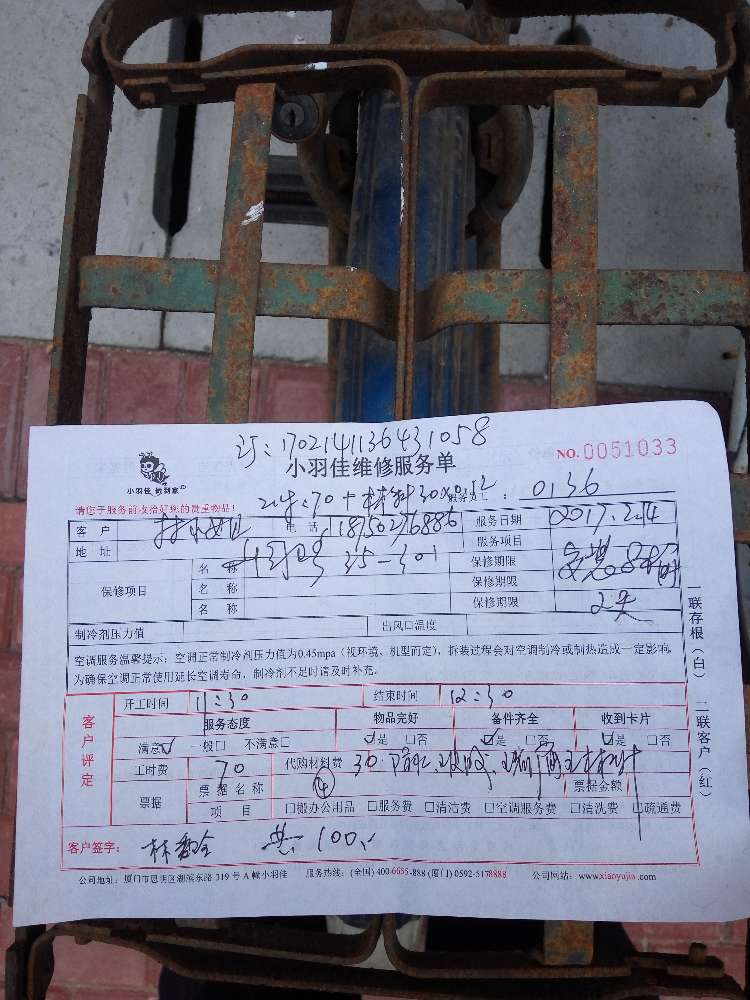 订:170214113643 1058
小羽佳维修服务单
NO.0051033
小羽佳 做到家
请您于服务前收拾好您的贵重物品! 0136
客户 电话 18750276886 服务日期 2017.2.14
地址 35-301 服务项目
保修项目 名称 保修期限
名称 保修期限
名称 保修期限 2天
制冷剂压力值 出风口温度
空调服务温馨提示:空调正常制冷剂压力值为0.45mpa(视环境、机型而定),拆装过程会对空调制冷或制热造成一定影响,
为确保空调正常使用延长空调寿命,制冷剂不足时请及时补充。
一联存根(白) 二联客户(红)
客户评定
开工时间 11:30 结束时间 12:30
服务态度 物品完好 备件齐全 收到卡片
满意☑ 一般□ 不满意□ ☑是 □否 ☑是 □否 ☑是 □否
工时费 70 代购材料费 30
票据 票据名称 票据金额
项目 □搬办公用品 □服务费 □清洁费 □空调服务费 □清洗费 □疏通费
客户签字: 共100
公司地址:厦门市思明区湖滨东路319号A幢小羽佳 服务热线:(全国)400-6635-888 (厦门)0592-5178888 公司网站:www.xiaoyujia.com